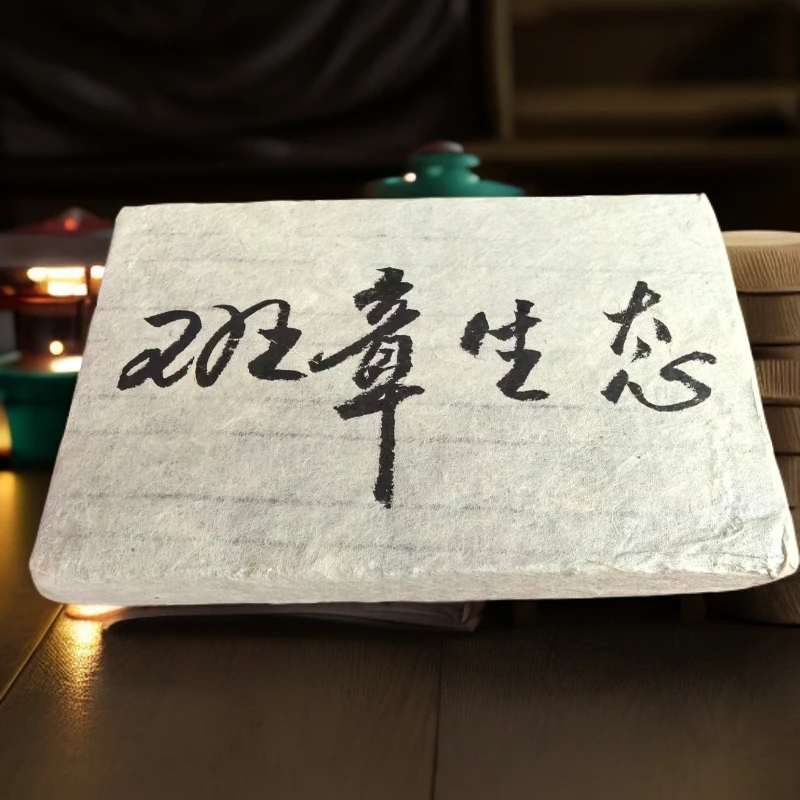 班章生态